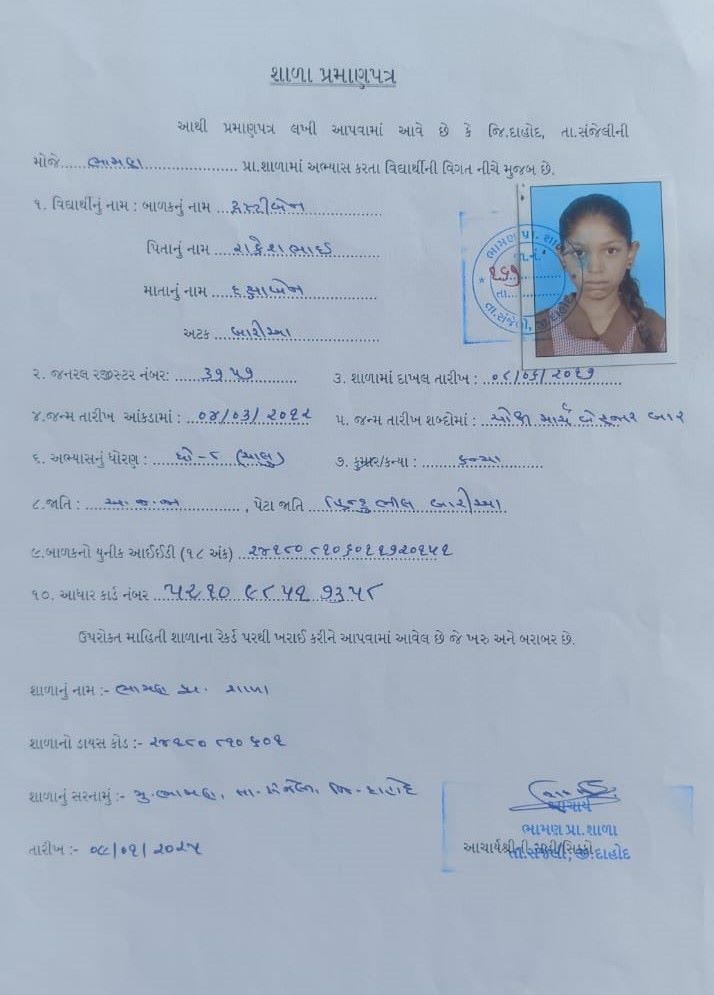 શાળા પ્રમાણપત્ર
આથી પ્રમાણપત્ર લખી આપવામાં આવે છે કે જિ.દાહોદ, તા.સંજેલીની
મોજે.....ભામણ..................... પ્રા.શાળામાં અભ્યાસ કરતા વિદ્યાર્થીની વિગત નીચે મુજબ છે.
૧. વિદ્યાર્થીનું નામ : બાળકનું નામ ...
પિતાનું નામ ....રાકેશભાઈ
માતાનું નામ ....દક્ષાબેન
અટક ....બારીઆ
ભામણ પ્રા. શાળા
જા.નં.
તા.
તા.સંજેલી, જી.દાહોદ
૨. જનરલ રજીસ્ટર નંબર: ....૩૧૫૧ ૩. શાળામાં દાખલ તારીખ :
૪.જન્મ તારીખ આંકડામાં : ૦૪/૦૩/૨૦૧૨ ૫. જન્મ તારીખ શબ્દોમાં : ચોથી માર્ચ બેહજાર બાર
૬. અભ્યાસનું ધોરણ : ધો-૮ (ચાલુ) ૭. કુમાર/કન્યા : કન્યા
૮.જાતિ : અ.જ.જા , પેટા જાતિ હિન્દુ ભીલ બારીઆ
૯.બાળકનો યુનીક આઈઈડી (૧૮ અંક)
૧૦. આધાર કાર્ડ નંબર
ઉપરોક્ત માહિતી શાળાના રેકર્ડ પરથી ખરાઈ કરીને આપવામાં આવેલ છે જે ખરુ અને બરાબર છે.
શાળાનું નામ :- ભામણ પ્રા. શાળા
શાળાનો ડાયસ કોડ :- ૨૪૧૮૦૮૧૦૬૦૧
શાળાનું સરનામું :- મુ.ભામણ, તા-સંજેલી, જિ-દાહોદ
આચાર્ય
ભામણ પ્રા.શાળા
તારીખ :- ૦૯/૦૧/૨૦૨૫
તા.સંજેલી, જી.દાહોદ